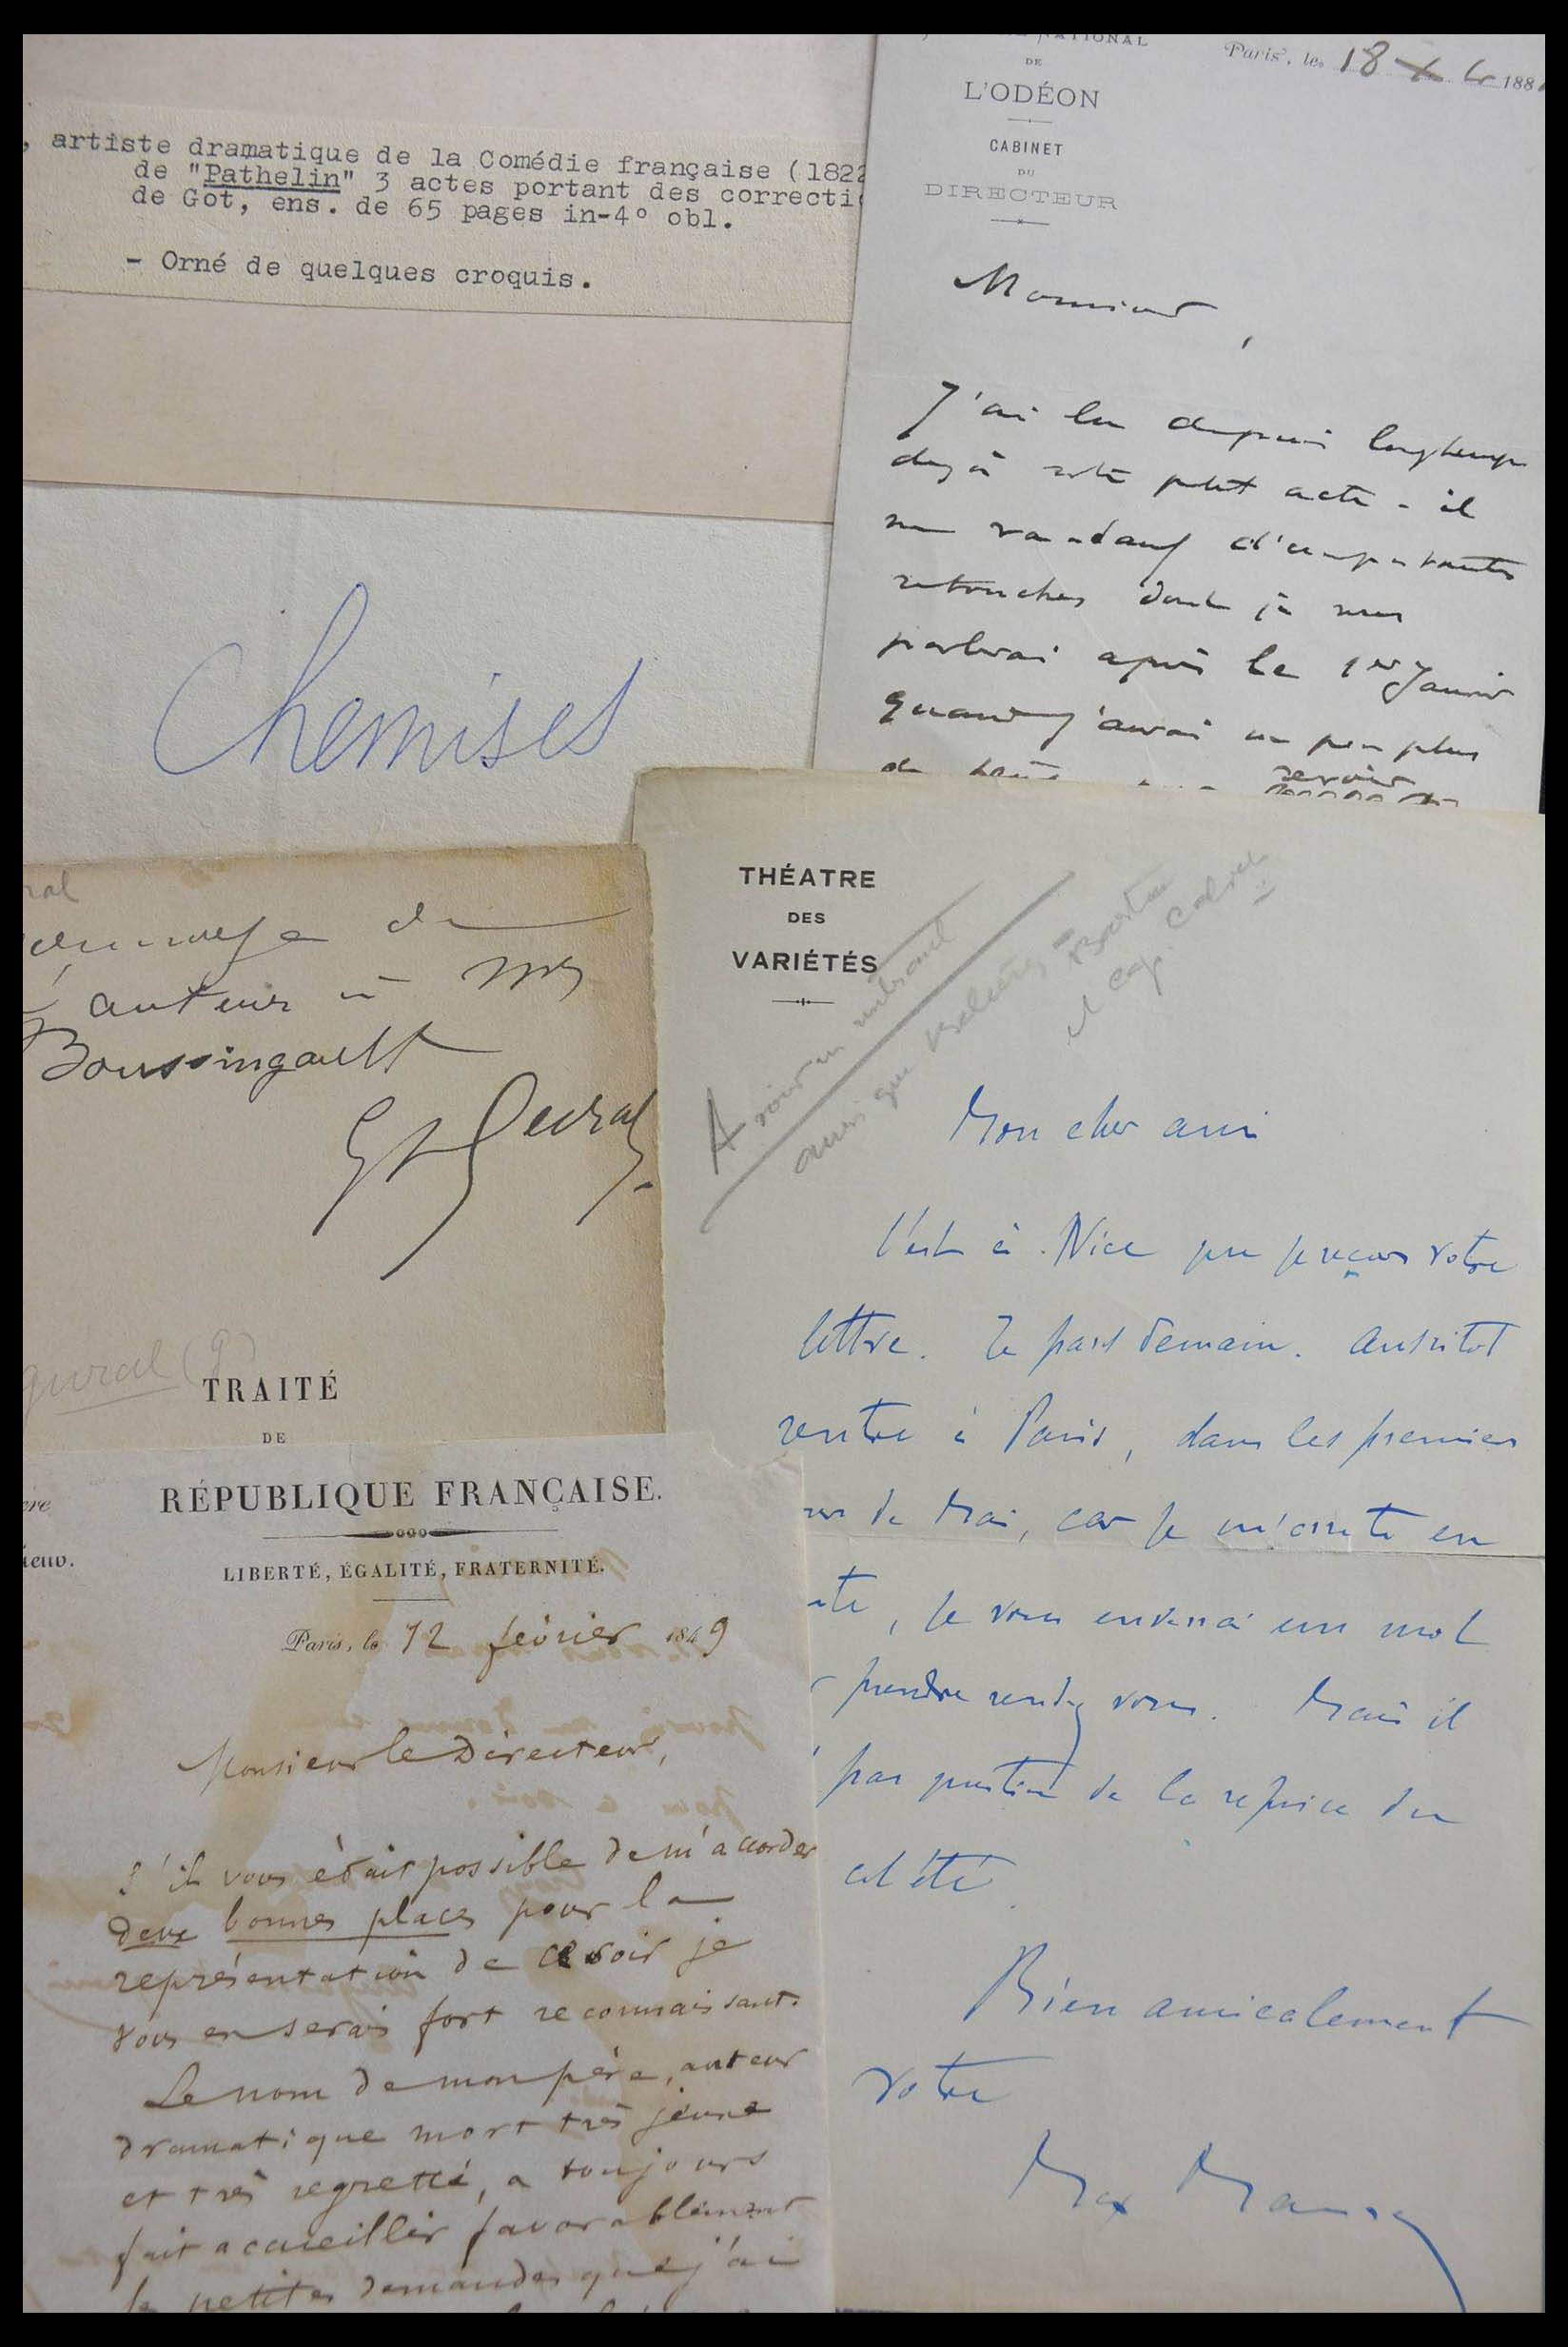 , artiste dramatique de la Comédie française (1822
de "Pathelin" 3 actes portant des correcti
de Got, ens. de 65 pages in-4° obl.
- Orné de quelques croquis.
NATIONAL
DE
L'ODÉON
CABINET
DU
DIRECTEUR
Paris, le 18 188
Monsieur,
J'ai lu depuis longtemps
dejà votre petit acte - il
me va - sauf d'importantes
retouches dont je vous
parlerai après le 1er Janvier
quand j'aurai un peu plus
de revoir
Chemises
ral
de
auteur à
Boussingault
THÉATRE
DES
VARIÉTÉS
A voir en rentrant
ainsi que
et
Mon cher ami
C'est à Nice que je reçois votre
lettre. Je pars demain. Aussitot
rentré à Paris, dans les premiers
de Mai, car je m'arrete en
, je vous enverrai un mot
prendre rendez vous. Mais il
pas question de la reprise du
cet été.
Bien amicalement
votre
Max Maurey
TRAITÉ
DE
RÉPUBLIQUE FRANÇAISE.
LIBERTÉ, ÉGALITÉ, FRATERNITÉ.
Paris, le 12 février 1849
Monsieur le Directeur,
S'il vous était possible de m'accorder
deux bonnes places pour la
représentation de ce soir je
vous en serais fort reconnaissant.
Le nom de mon père, auteur
dramatique mort très jeune
et très regretté, a toujours
fait accueillir favorablement
les petites demandes que j'ai